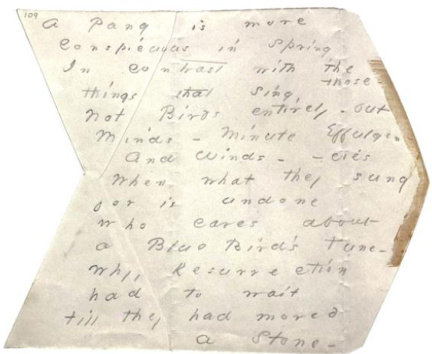 109
A Pang is more
Conspicuous in Spring
In contrast with the
those-
things that sing
Not Birds entirely - but
Minds - Minute Effulgen
cies
And Winds -
When what they sung
for is undone
Who cares about
a Blue Bird's Tune -
Why, Resurrection
had to wait
till they had moved
a Stone -